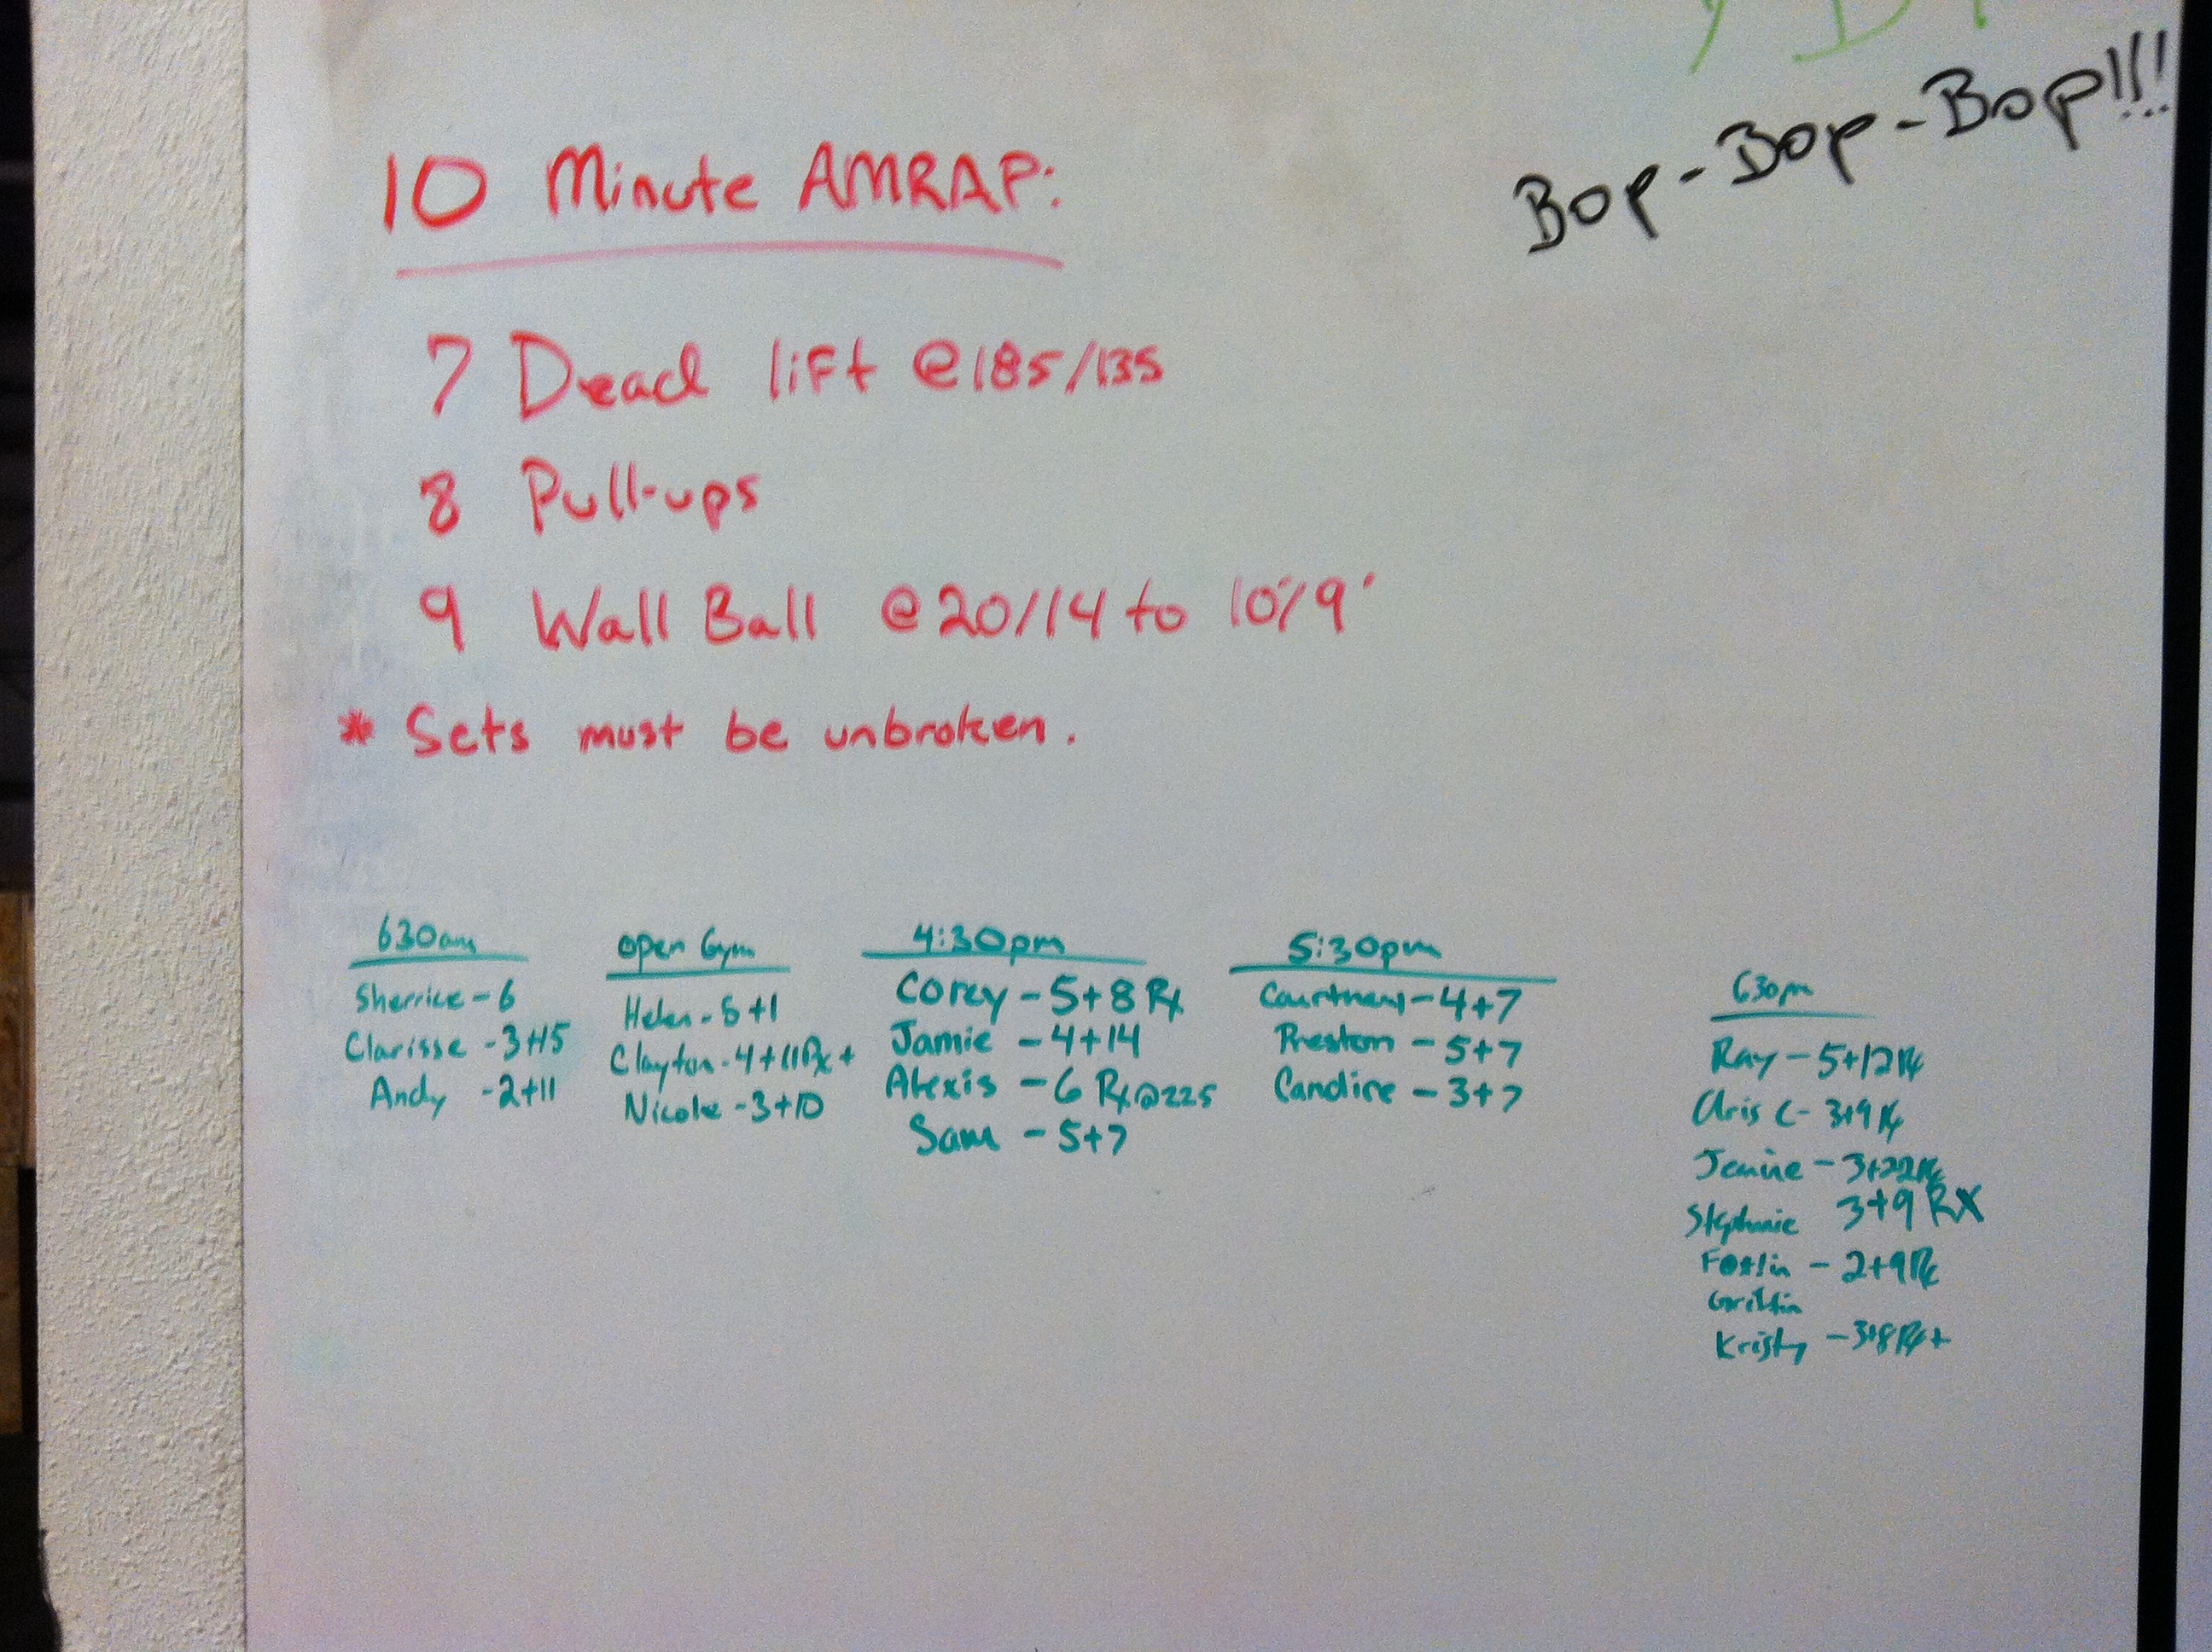 Bop-Bop-Bop!!!
10 Minute AMRAP:
7 Dead lift @185/135
8 Pull-ups
9 Wall Ball @20/14 to 10'/9'
* Sets must be unbroken.
630am
Sherrice - 6
Clarisse - 3+15
Andy - 2+11
open Gym
Helen - 5+1
Clayton - 4+11 Rx+
Nicole - 3+10
4:30pm
Corey - 5+8 Rx
Jamie - 4+14
Alexis - 6 Rx@225
Sam - 5+7
5:30pm
Courtney - 4+7
Preston - 5+7
Candice - 3+7
630pm
Ray - 5+12 Rx
Chris C - 3+9 Rx
Jenine - 3+22 Rx
Stephanie 3+9 RX
- 2+9 Rx
Griffin
Kristy - 3+8 Rx+